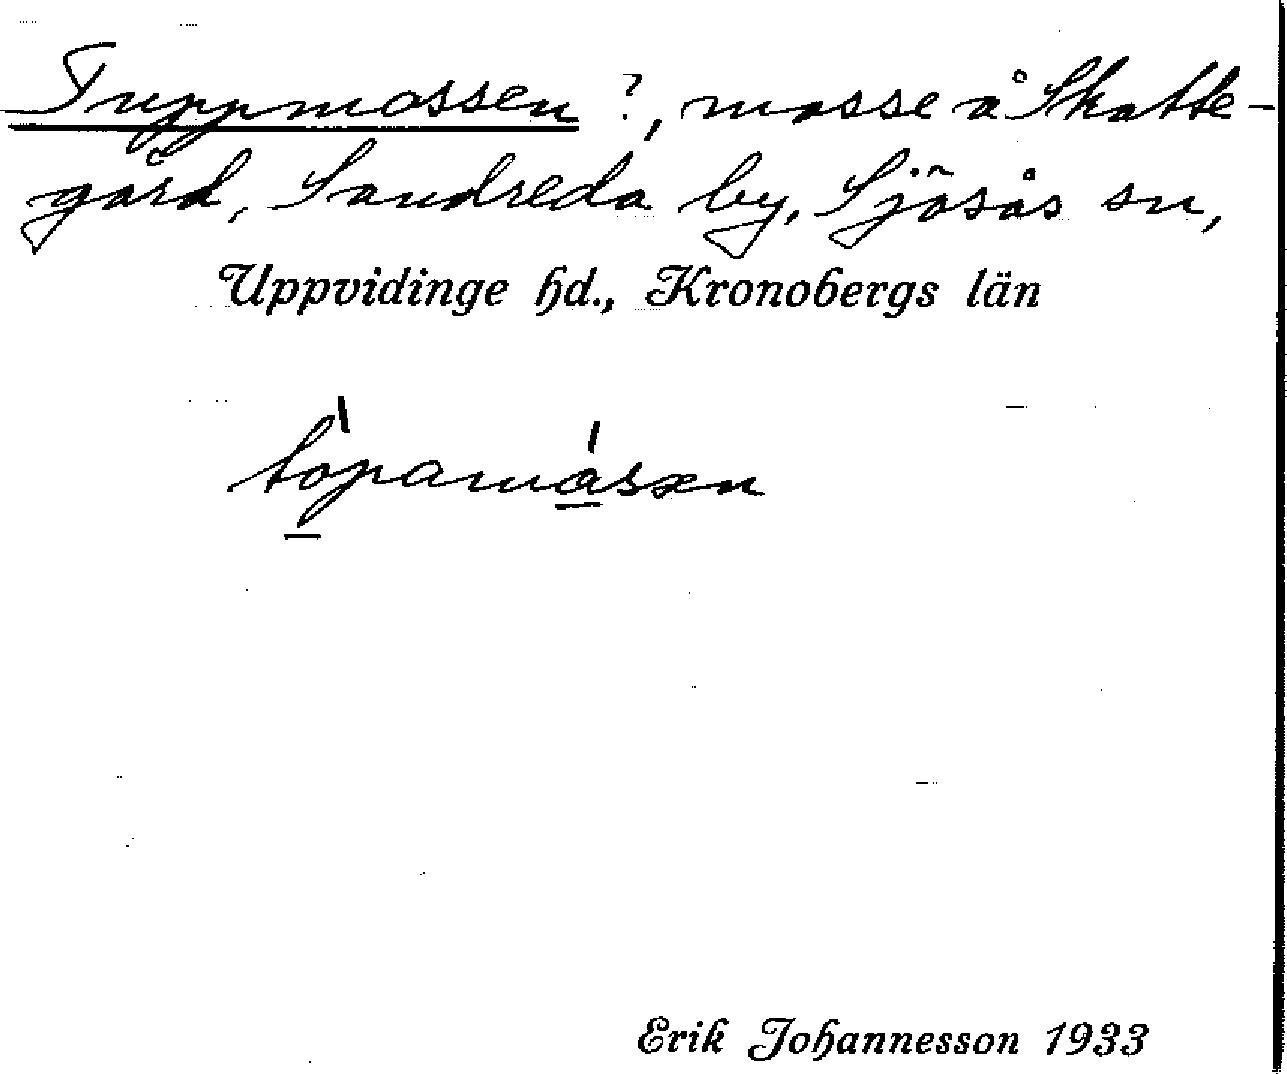 Tuppmossen ?, mosse å Skatte-
gård, Sandreda by, Sjösås sn,
Uppvidinge hd., Kronobergs län
töpamåsen
Erik Johannesson 1933